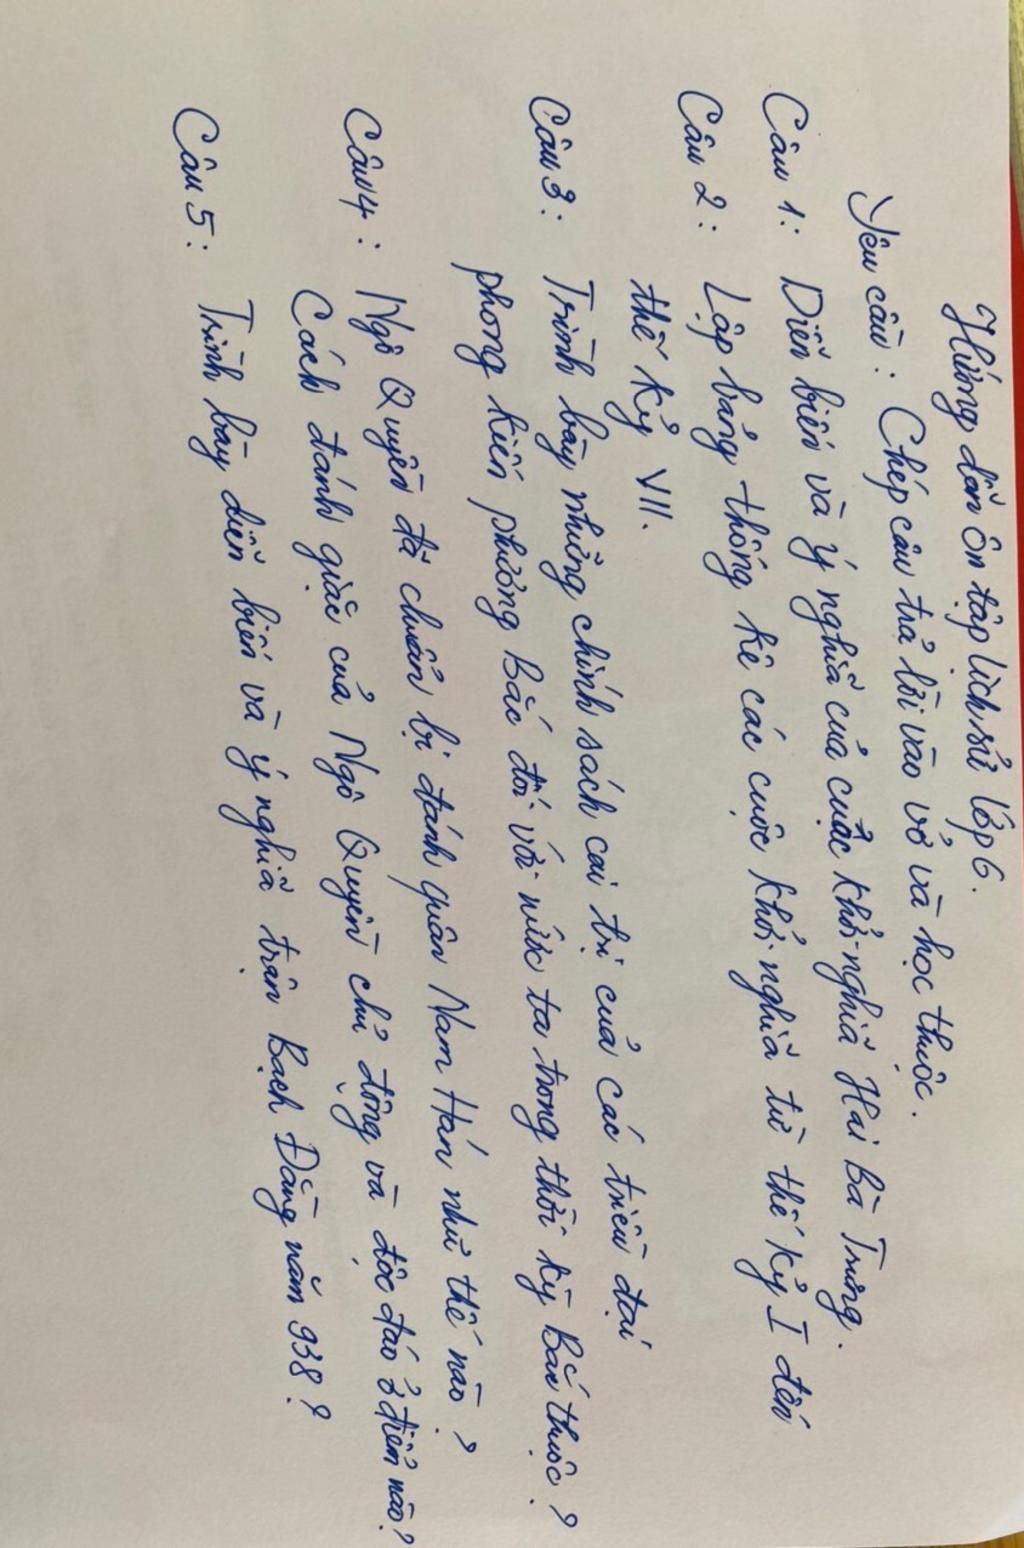 Hướng dẫn ôn tập lịch sử lớp 6.
Yêu cầu: Chép câu trả lời vào vở và học thuộc.
Câu 1: Diễn biến và ý nghĩa của cuộc khởi nghĩa Hai Bà Trưng.
Câu 2: Lập bảng thống kê các cuộc khởi nghĩa từ thế kỷ I đến
thế kỷ VII.
Câu 3: Trình bày những chính sách cai trị của các triều đại
phong kiến phương Bắc đối với nước ta trong thời kỳ Bắc thuộc?
Câu 4: Ngô Quyền đã chuẩn bị đánh quân Nam Hán như thế nào?
Cách đánh giặc của Ngô Quyền chủ động và độc đáo ở điểm nào?
Câu 5: Trình bày diễn biến và ý nghĩa trận Bạch Đằng năm 938?